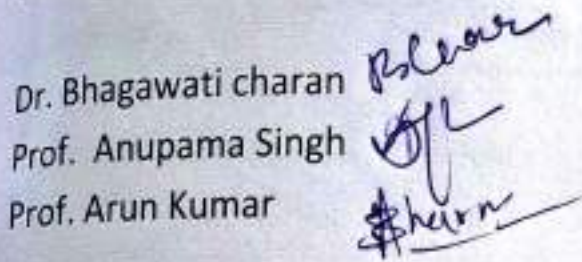 Dr. Bhagawati charan
Prof. Anupama Singh
Prof. Arun Kumar